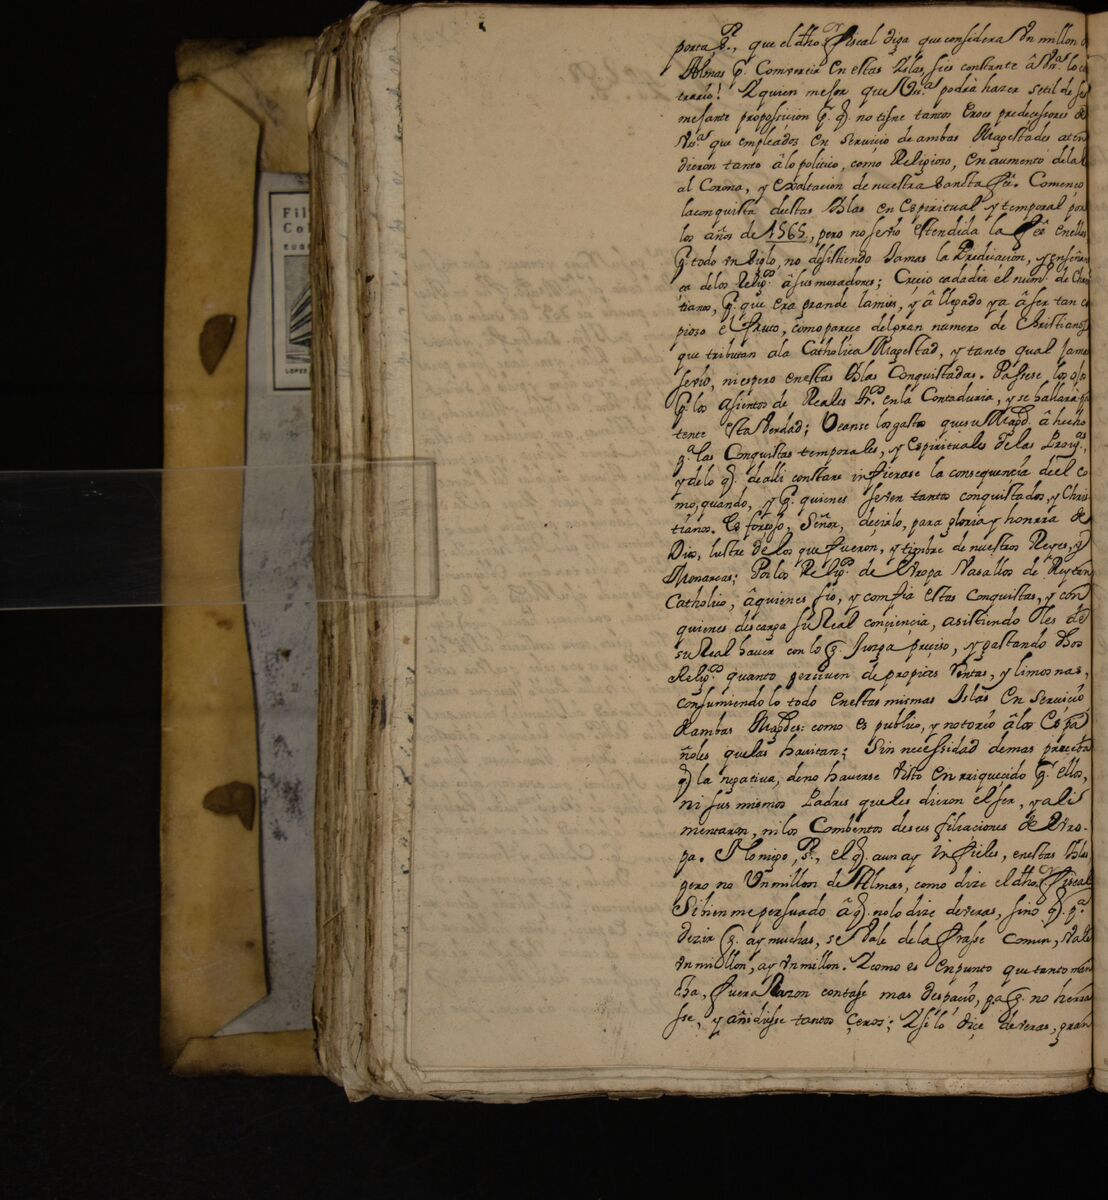 Fil
Col
EUGE
LOPEZ
porta Sr., que el dho Fiscal diga que considera Vn millon d
Almas pr. Comvertir en estas Islas, si es constante â Vras. lo co
trario! Y quien mejor que Vras podrà hazer setil de se
mejante proposision pr. q. no tiene tantos Eroes predecessores de
Vras que empleados en servicio de ambas Magestades aten
dieron tanto âlo politico, como Religioso, en aumento dela
al Corona, y exaltacion de nuestra Sancta Fê. Començo
laconquista destas Islas en Espiritual y temporal por
los años de 1565., pero no sevio estendida la Fee enellas
pr. todo vn siglo, no desistiendo Jamas la Predicacion, y enseñan
ça delos Religs. â sus moradores; Crecio cadadia el num. de Chris
tianos, pr. que era grande lamies, y â llegado ya â ser tan co
pioso el fruto, como parece delgran numero de Christianos
que tributan ala Catholica Magestad, y tanto qual Jamas
sevio, niespero enestas Islas Conquistadas. Passese los ojos
pr. los asientos de Reales en la Contaduria, y se hallarà pa
tente esta verdad; Veanse losgastos quesu Magd. â hecho
pa. las Conquistas temporales, y Espirituales de las Provas.,
y delo q. dealli constare infierase la consequencia deel co
mo, quando, y pr. quienes se ven tantos conquistados, y Chris
tianos. Es forsoso, Señor, decirlo, para gloria y honrra de
Dios, lustre de los que fueron, y timbre de nuestros Reyes, y
Monarcas; Por los Religs. de Vropa Vasallos de Rey tan
Catholico, âquienes fio, y confia estas Conquistas, y con
quienes descarga su Real conciencia, asistiendo les de
su Real haver con lo q. Jusga preciso, y gastando dhos
Religs. quanto perciven de propias rentas, y limosnas,
consumiendo lo todo enestas mismas Islas en servicio
deambas Magdes: como es publico, y notorio âlos Espa
ñoles quelas havitan; Sin necessidad demas prueba
q. la negativa, deno haverse visto enrriquecido pr. ellos,
ni sus mismos Padres queles dieron el ser, y ali
mentaron, nilos Combentos desus filiaciones de Vro-
pa. No niego, Sr., el q. aun ay Infieles, enestas Islas
pero no Vn millon de Almas, como dize el dho. Fiscal
Sibien me persuado â q. nolo dize deveras, sino q. pa.
dezir q. ay muchas, se vale de la frasse comun, vale
vn millon, ay vn millon. Y como es enpunto que tanto man
cha, fuera Razon contase mas despacio, pa q. no herra
sse, y añidiesse tantos çeros; Y si lo dice deveras, gran